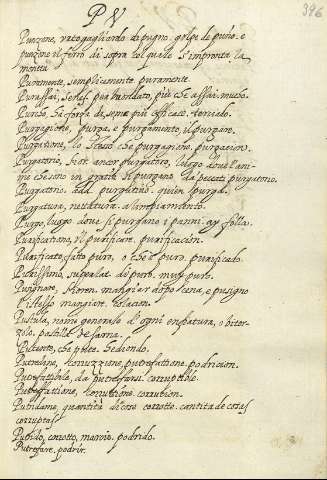 P V
396
Punzone, vale gagliardo di pugno. golpe de puño. e
punzone il ferro di sopra col quale s'impronta la
moneta
Puramente, semplicemente. puramente.
Purassai, per piu che assai. mucho.
Purgagione, purga, e purgamento, il purgare.
Purgatione, lo stesso che purgagione. purgacion.
Purgatorio, luogo dove l'ani-
me che sono in gratia si purgano da peccati. purgatorio.
Purgatore. quien purga.
Purgatura, nettatura. alimpiamento.
Purgo, luogo dove si purgano i panni.
Purificatione, il purificare. purificacion.
Purificato, fatto puro, o che è puro. purificado.
Purissimo, superlat. di puro. muy puro.
Pusignare, mangiar dopo cena, e pusigno
l'istesso mangiare. colacion.
Pustula, nome generale d'ogni enfiatura, o bitor-
zolo. postilla de sarna.
Putente, che pute. hediondo.
Putredine, corruzzione, putrefattione. podricion.
Putrefattibile, da putrefarsi. corruptible.
Putrefattione, corruttione. corrution.
Putridame, quantità di cose corrotte. cantita de cosas
corruptas
Putrido, corrotto, marcio. podrido.
Putrefare. podrir.